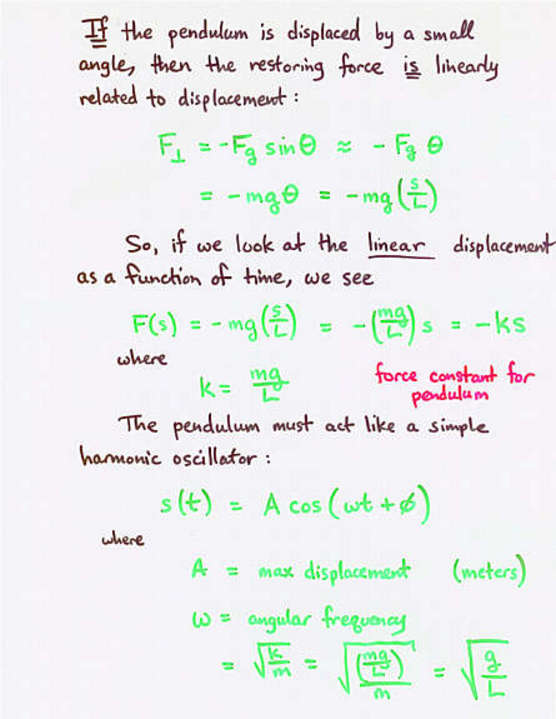 If the pendulum is displaced by a small
angle, then the restoring force is linearly
related to displacement :
F⊥ = -Fg sin θ ≈ - Fg θ
= - mgθ = - mg(s/L)
So, if we look at the linear displacement
as a function of time, we see
F(s) = - mg(s/L) = -(mg/L) s = -ks
where
k = mg/L force constant for
pendulum
The pendulum must act like a simple
harmonic oscillator :
s(t) = A cos (ωt + φ)
where
A = max displacement (meters)
ω = angular frequency
= √(k/m) = √((mg/L)/m) = √(g/L)